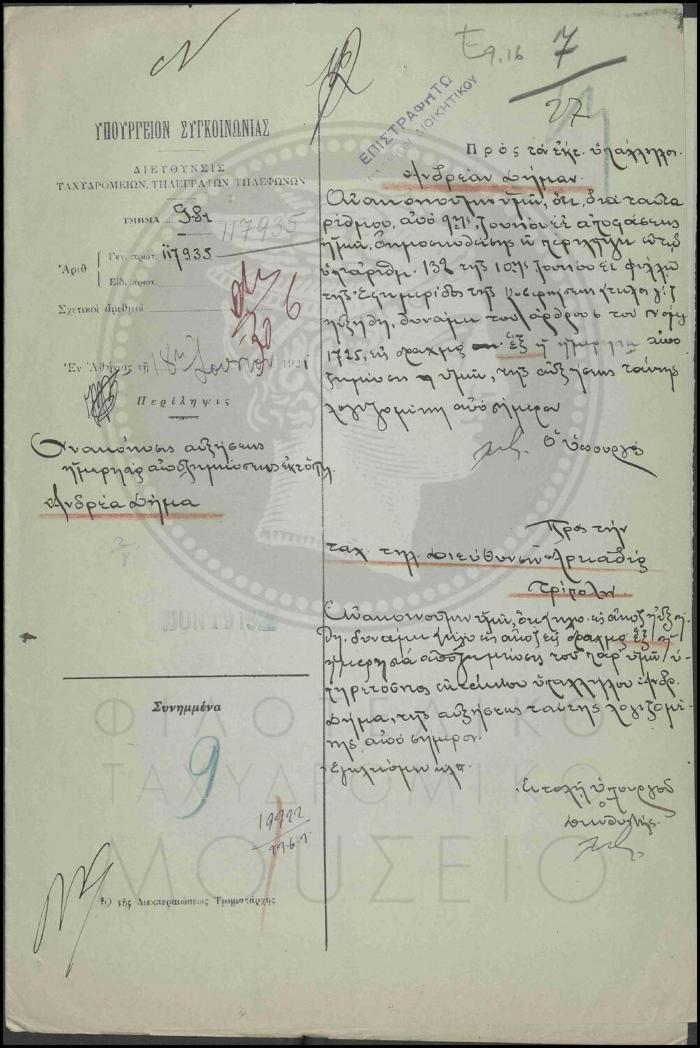 Εφ.16 7
27
ΕΠΙΣΤΡΑΦΗΤΩ
ΔΙΟΙΚΗΤΙΚΟΥ
ΥΠΟΥΡΓΕΙΟΝ ΣΥΓΚΟΙΝΩΝΙΑΣ
ΔΙΕΥΘΥΝΣΙΣ
ΤΑΧΥΔΡΟΜΕΙΩΝ, ΤΗΛΕΓΡΑΦΩΝ ΤΗΛΕΦΩΝΩΝ
ΤΜΗΜΑ
117935
Ἀριθ Γεν. πρωτ. 117935
Εἰδ. πρωτ.
Σχετικοὶ ἀριθμοί
Ἐν Ἀθήναις τῇ 18ῃ Ἰουνίου 1921
Περίληψις
ἀνακοίνωσις αὐξήσεως
ἡμερησίας ἀποζημιώσεως ἐκτάκτου
Ἀνδρέα Δήμα
Συνημμένα
9
19922
27-6-
Ὁ τῆς Διεκπεραιώσεως Τμηματάρχης
Πρὸς τὸν ἔκτ. ὑπάλληλον
Ἀνδρέαν Δήμαν
Ἀνακοινοῦμεν ὑμῖν, ὅτι, διὰ ταυτα
ρίθμου, ἀπὸ Ἰουνίου ἐ.ἔ. ἀποφάσεως
ἡμῶν, δημοσιευθείσης ἐν περιλήψει
ὑπ' ἀριθμ. 132 τῆς Ἰουνίου ἐ.ἔ. φύλλῳ
τῆς Ἐφημερίδος τῆς Κυβερνήσεως
ηὐξήθη, δυνάμει τοῦ ἄρθρου 6 τοῦ Νόμου
1725, εἰς δραχμὰς ἓξ ἡ ἡμερησία ἀπο
ζημίωσις ὑμῶν, τῆς αὐξήσεως ταύτης
λογιζομένης ἀπὸ σήμερον
Ὁ Ὑπουργός
Πρὸς τὴν
ταχ. τηλ. Διεύθυνσιν Ἀρκαδίας
Τρίπολιν
Ἀνακοινοῦμεν ὑμῖν, ὅτι
δυνάμει δραχμὰς ἓξ ἡ
ἡμερησία ἀποζημίωσις τοῦ παρ' ὑμῖν ὑ-
πηρετοῦντος ἐκτάκτου ὑπαλλήλου Ἀνδρ.
Δήμα, τῆς αὐξήσεως ταύτης λογιζομέ
νης ἀπὸ σήμερον.
Ἐντολῇ Ὑπουργοῦ
ὁ
Διευθυντής
ΦΙΛΟΤΕΛΙΚΟ
ΤΑΧΥΔΡΟΜΙΚΟ
ΜΟΥΣΕΙΟ